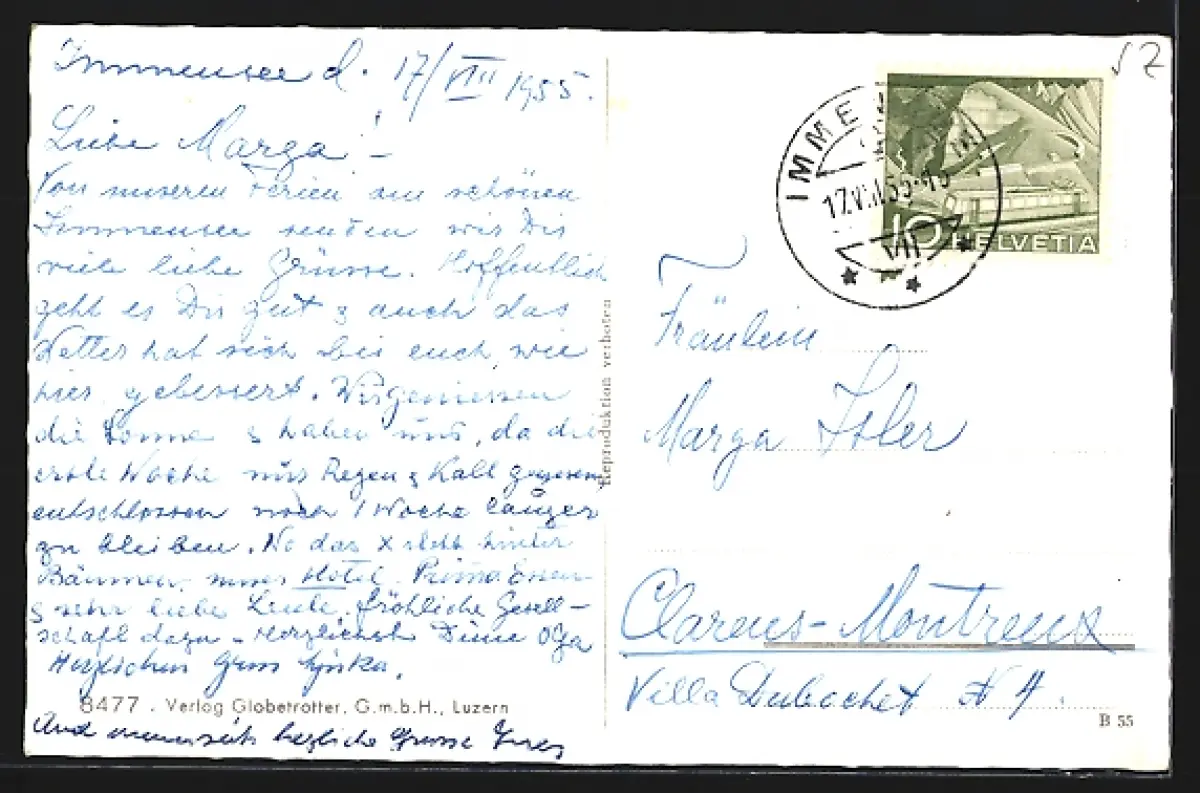 Immensee d. 17/VIII 1955.
Liebe Marga! –
Von unseren Ferien am schönen
Immensee senden wir Dir
viele liebe Grüsse. Hoffentlich
geht es Dir gut & auch das
Wetter hat sich bei euch, wie
hier, gebessert. Wir geniessen
die Sonne & haben uns, da die
erste Woche nur Regen & Kalt gewesen,
entschlossen noch 1 Woche länger
zu bleiben. Wo das X steht hinter
Bäumen, unser Hotel. Prima Essen
& sehr liebe Leute, fröhliche Gesell-
schaft dazu – Herzlichst Deine Olga
Herzlichen Gruss
8477 . Verlag Globetrotter, G.m.b.H., Luzern
Auch meinerseits herzliche Grüsse
Reproduktion verboten
√ Z
IMMENSEE
17.VIII.55
VII
10 HELVETIA
Fräulein
Marga Isler
Clarens-Montreux
Villa Dubochet N 4.
B 55